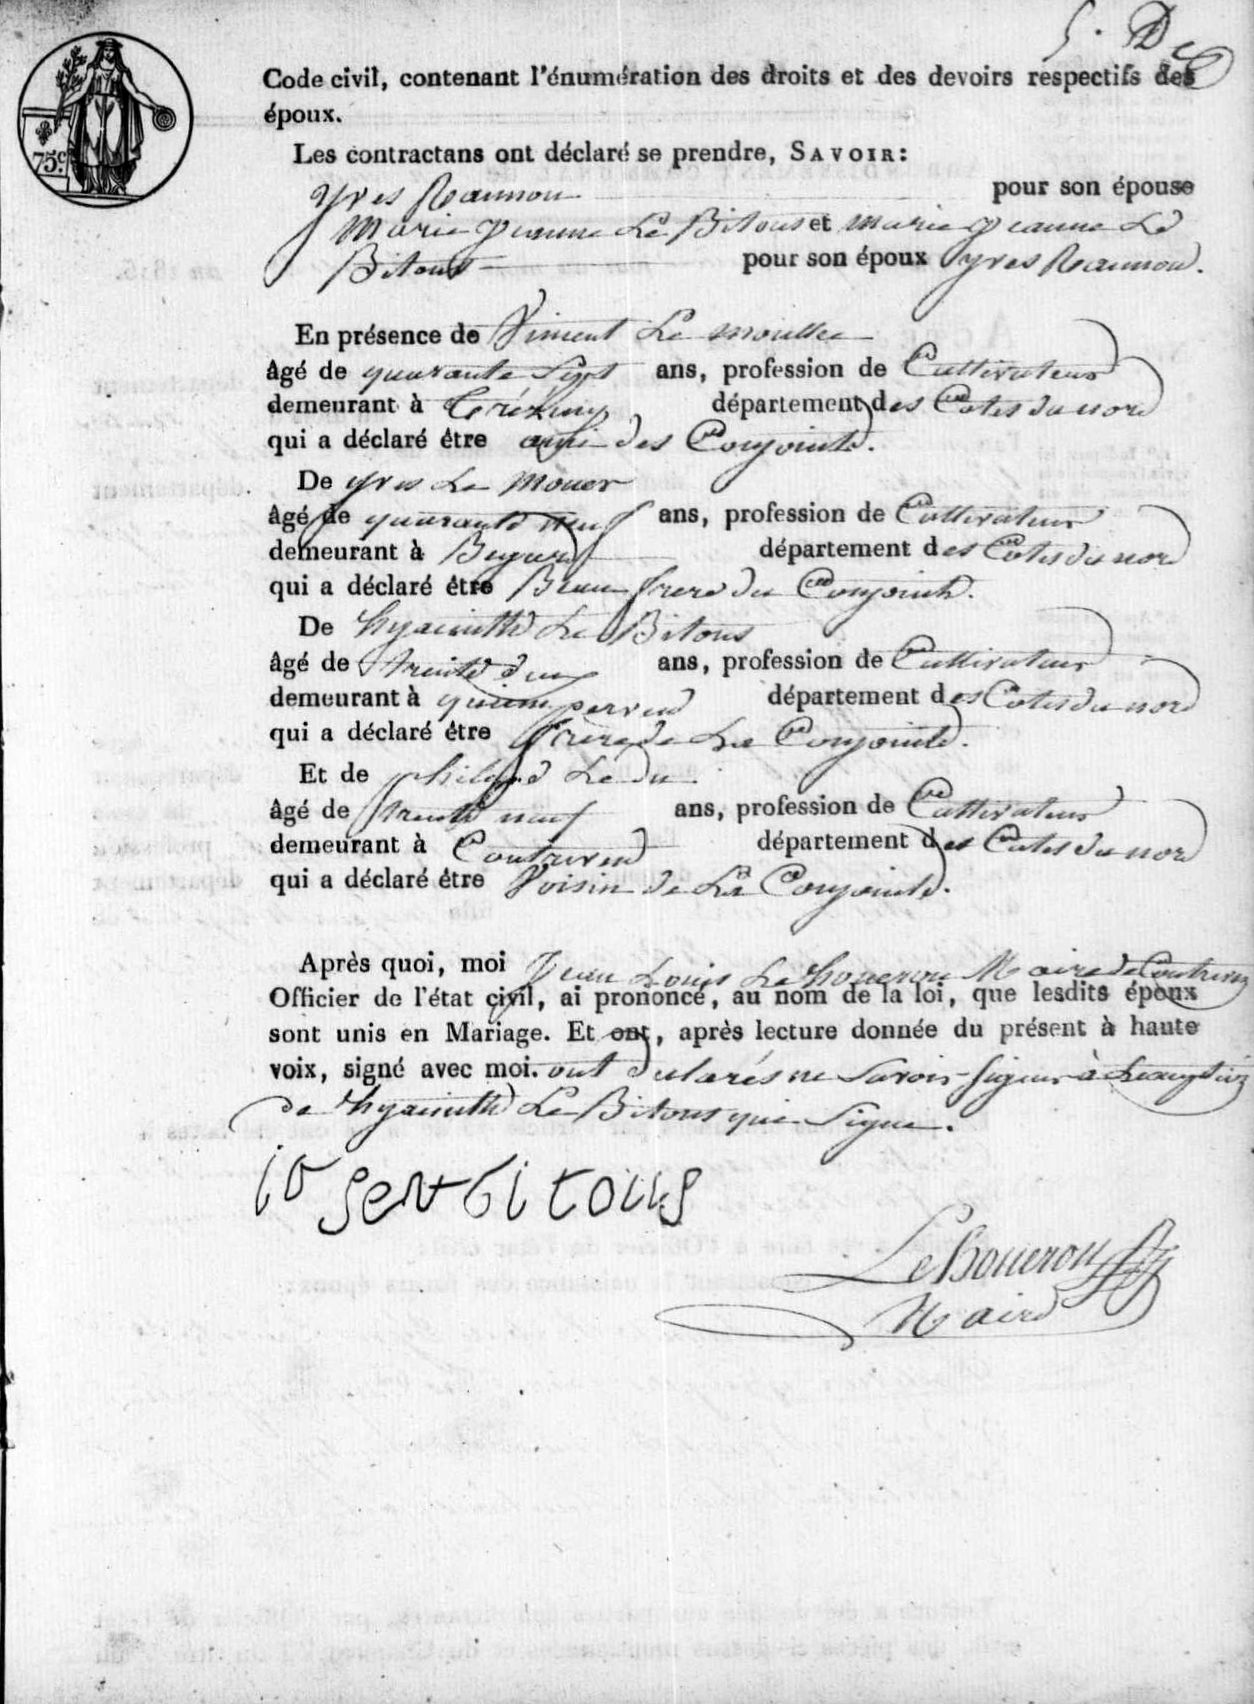 5. De
Code civil, contenant l'énumération des droits et des devoirs respectifs des
époux.
75.c
Les contractans ont déclaré se prendre, SAVOIR:
yves Raunnou pour son épouse
Marie jeanne Le Bitous et Marie jeanne Le
Bitous pour son époux yves Raunnou.
En présence de Vincent Le Moullec
âgé de quarante Sept ans, profession de Cultivateur
demeurant à Trézeny département des Cotes du nord
qui a déclaré être ami des Conjoints.
De yves Le Mouer
âgé de quarante neuf ans, profession de Cultivateur
demeurant à Begard département des Cotes du nord
qui a déclaré être Beau frere du Conjoint.
De hyacinthe Le Bitous
âgé de trente deux ans, profession de Cultivateur
demeurant à quimperven département des Cotes du nord
qui a déclaré être frere de La Conjointe.
Et de Le Du
âgé de trente neuf ans, profession de Cultivateur
demeurant à Coatasven département des Cotes du nord
qui a déclaré être Voisin de La Conjointe.
Après quoi, moi Jean Louis Le houerou Maire de
Officier de l'état civil, ai prononcé, au nom de la loi, que lesdits époux
sont unis en Mariage. Et ont, après lecture donnée du présent à haute
voix, signé avec moi. ont declarés ne Savoir Signer à
de hyacinthe Le Bitous qui Signe.
bitous
Le houerou
Maire